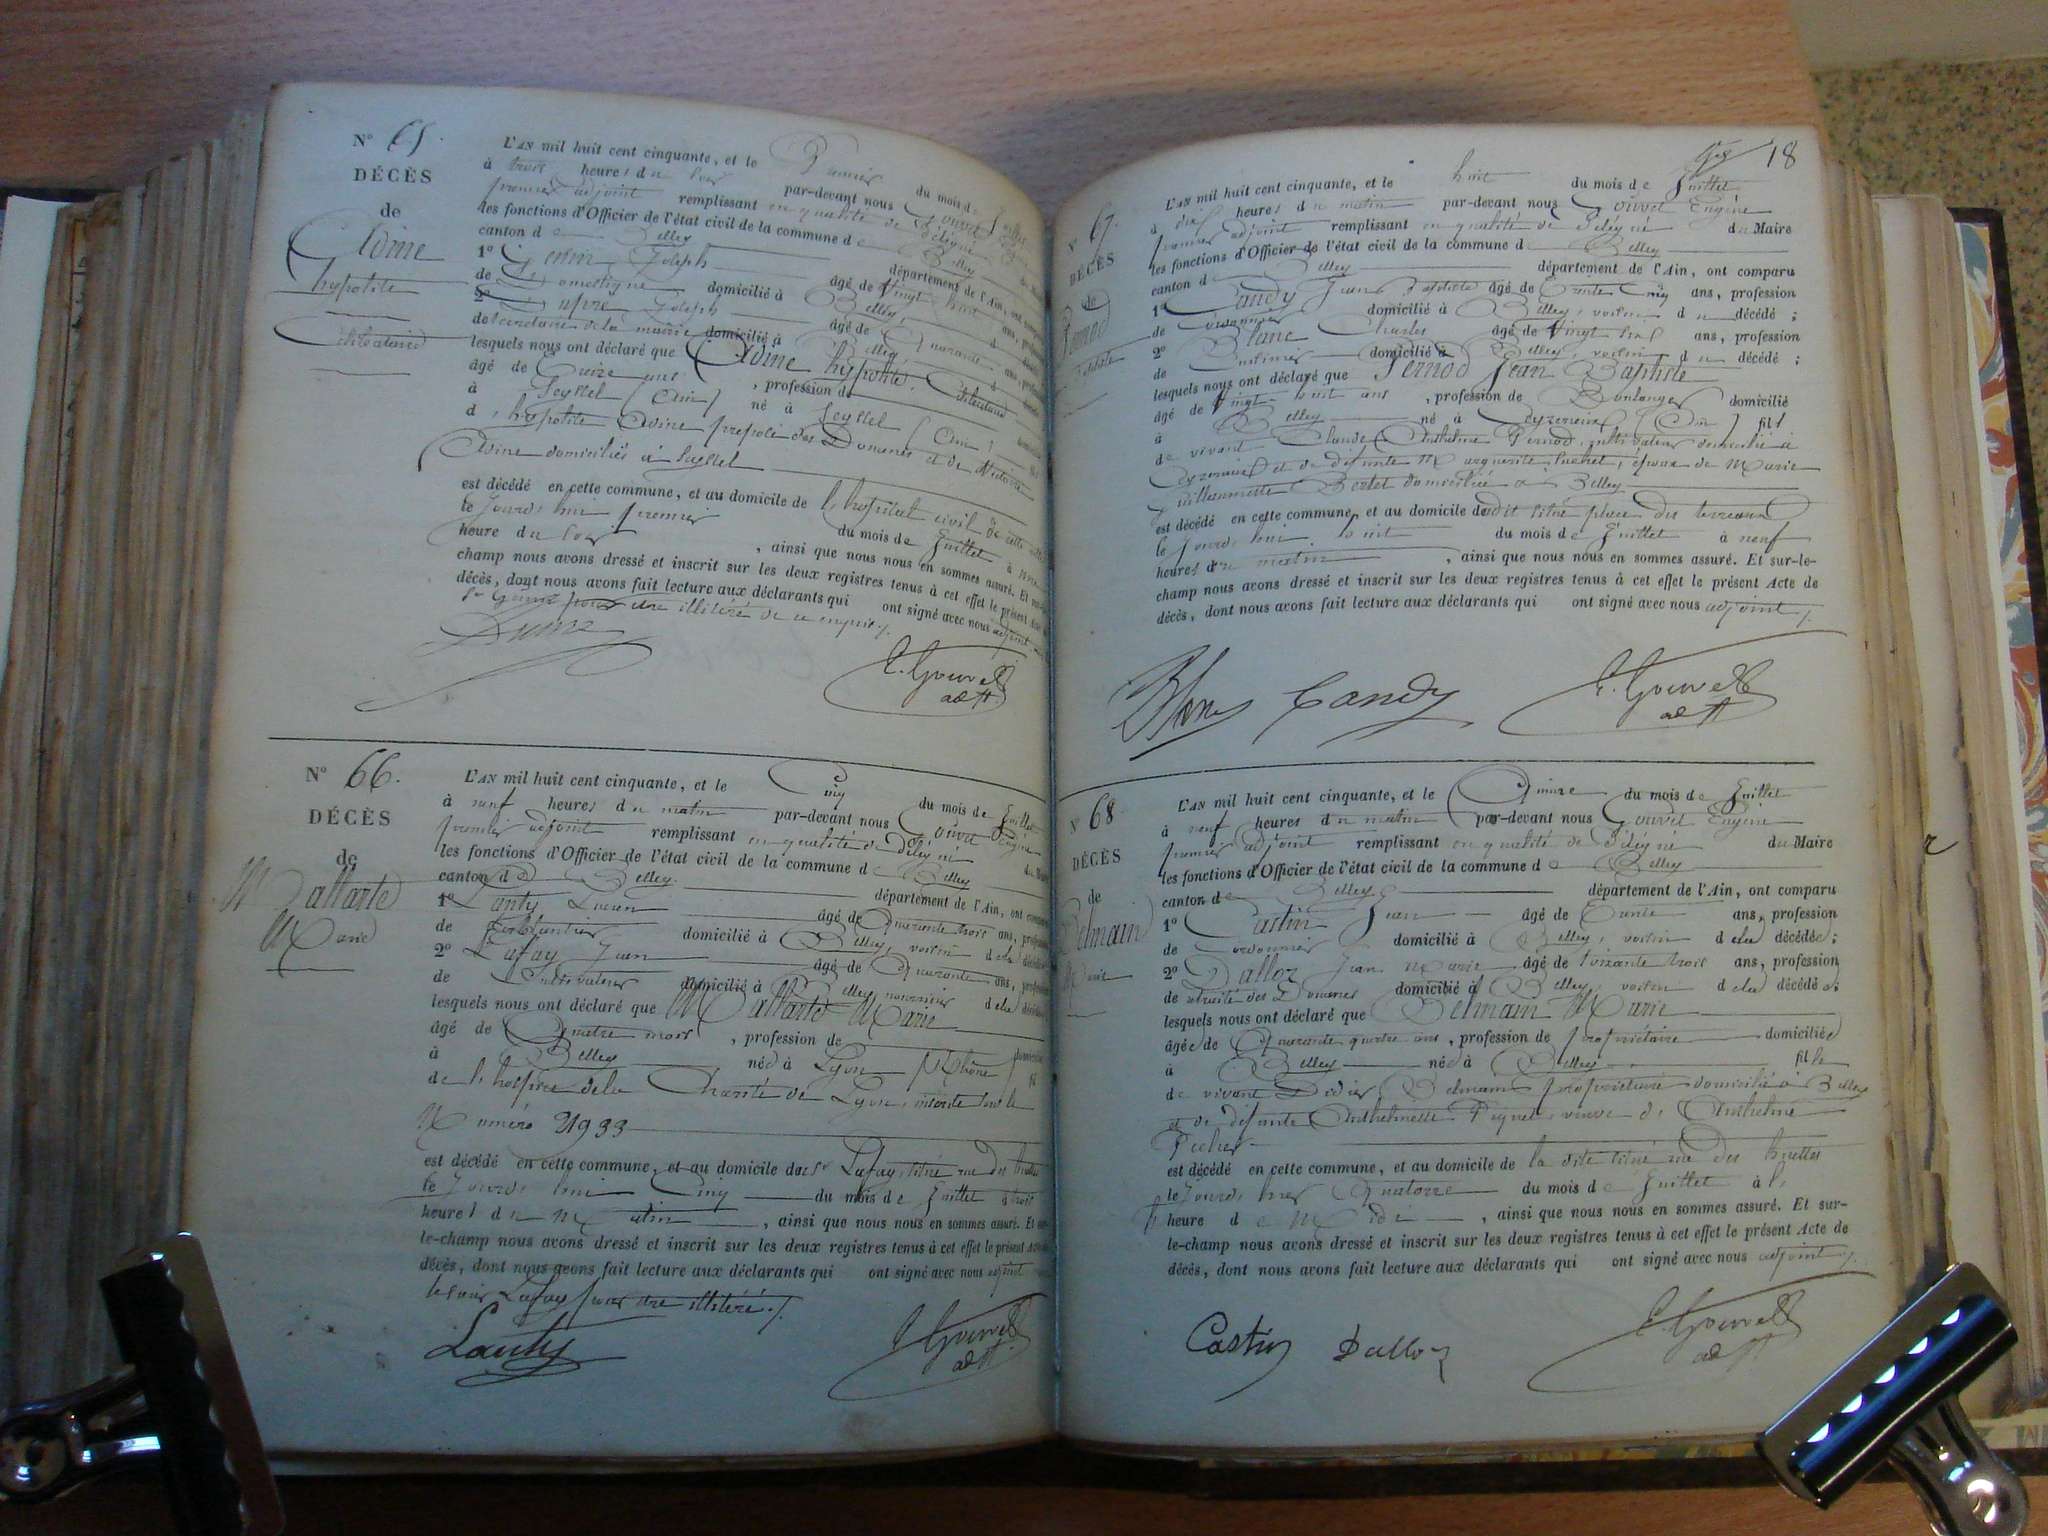 N° 65.
DÉCÈS
de
Adine
hypolite
Célibataire
L'AN mil huit cent cinquante, et le Premier du mois de Juillet
à trois heures du soir par-devant nous Gouvet Eugène
premier adjoint remplissant en qualité de Délégué du Maire
les fonctions d'Officier de l'état civil de la commune de Belley
canton de Belley département de l'Ain, ont comparu
1° Joseph âgé de Vingt huit ans, profession
de Domestique domicilié à Belley,
2° Dupré Joseph âgé de Quarante ans, profession
de Secrétaire de la mairie domicilié à Belley,
lesquels nous ont déclaré que Adine hypolite. Célibataire
âgé de Onze ans, profession de
à Seyssel (Ain) né à Seyssel (Ain)
d'hypolite Adine préposé des Douanes et de Victoire
Adine domiciliés à Seyssel
est décédé en cette commune, et au domicile de l'hospital civil de cette ville
le Jourd'hui premier du mois de Juillet à une
heure du soir, ainsi que nous nous en sommes assuré. Et sur-le-
champ nous avons dressé et inscrit sur les deux registres tenus à cet effet le présent Acte de
décès, dont nous avons fait lecture aux déclarants qui ont signé avec nous adjoint
pour être illitéré de ce enquis ./.
E. Gouvet
adjt
N° 66.
DÉCÈS
de
Mallarte
Marie
L'AN mil huit cent cinquante, et le Cinq du mois de Juillet
à neuf heures du matin par-devant nous Gouvet Eugène
premier adjoint remplissant en qualité de Délégué du Maire
les fonctions d'Officier de l'état civil de la commune de Belley
canton de Belley département de l'Ain, ont comparu
1° Lanty Lucien âgé de Quarante trois ans, profession
de Ferblantier domicilié à Belley, voisin de la décédée
2° Lafay Jean âgé de Quarante ans, profession
de Cultivateur domicilié à Belley nourricier de la décédée
lesquels nous ont déclaré que Mallarte Marie
âgé de Quatre mois, profession de domiciliée
à Belley née à Lyon (Rhône) fil
de l'hospice de la Charité de Lyon, inscrite sous le
Numéro 21933
est décédé en cette commune, et au domicile du Sr Lafay, situé rue des huttes
le Jourd'hui Cinq du mois de Juillet à trois
heures du Matin, ainsi que nous nous en sommes assuré. Et sur-
le-champ nous avons dressé et inscrit sur les deux registres tenus à cet effet le présent Acte de
décès, dont nous avons fait lecture aux déclarants qui ont signé avec nous adjoint
le sieur Lafay pour être illitéré ./.
Lanty
E. Gouvet
adjt
18
N° 67.
DÉCÈS
de
Pernod
Baptiste
L'AN mil huit cent cinquante, et le huit du mois de Juillet
à dix heures du matin par-devant nous Gouvet Eugène
premier adjoint remplissant en qualité de Délégué du Maire
les fonctions d'Officier de l'état civil de la commune de Belley
canton de Belley département de l'Ain, ont comparu
1° Candy Jean Baptiste âgé de Trente Cinq ans, profession
de Cordonnier domicilié à Belley, voisin du décédé;
2° Blanc Charles âgé de Vingt six ans, profession
de domicilié à Belley, voisin du décédé;
lesquels nous ont déclaré que Pernod Jean Baptiste
âgé de Vingt huit ans, profession de Boulanger domicilié
à Belley né à Ceyzerieu (Ain) fils
de vivant Claude Anthelme Pernod, cultivateur domicilié à
Ceyzerieu et de défunte Marguerite, époux de Marie
Guillaumette Bertet domiciliée à Belley
est décédé en cette commune, et au domicile dudit situé place des terreaux
le Jourd'hui huit du mois de Juillet à neuf
heures du matin, ainsi que nous nous en sommes assuré. Et sur-le-
champ nous avons dressé et inscrit sur les deux registres tenus à cet effet le présent Acte de
décès, dont nous avons fait lecture aux déclarants qui ont signé avec nous adjoint ./.
Blanc Candy E. Gouvet
adjt
N° 68
DÉCÈS
de
Belmain
Marie
L'AN mil huit cent cinquante, et le Quinze du mois de Juillet
à neuf heures du matin par-devant nous Gouvet Eugène
premier adjoint remplissant en qualité de Délégué du Maire
les fonctions d'Officier de l'état civil de la commune de Belley
canton de Belley département de l'Ain, ont comparu
1° Castin Jean âgé de Trente ans, profession
de Cordonnier domicilié à Belley, voisin de la décédée;
2° Dalloz Jean Marie âgé de soixante trois ans, profession
de retraité des Douanes domicilié à Belley, voisin de la décédée;
lesquels nous ont déclaré que Belmain Marie
âgée de Quarante quatre ans, profession de propriétaire domiciliée
à Belley née à Belley fille
de vivant Didier Belmain propriétaire domicilié à Belley
et de défunte Anthelmette Peynet, veuve de Anthelme
est décédé en cette commune, et au domicile de la dite situé rue des huttes
le Jourd'hier Quatorze du mois de Juillet à l'
heure de Midi, ainsi que nous nous en sommes assuré. Et sur-
le-champ nous avons dressé et inscrit sur les deux registres tenus à cet effet le présent Acte de
décès, dont nous avons fait lecture aux déclarants qui ont signé avec nous adjoint ./.
Castin Dalloz E. Gouvet
adjt